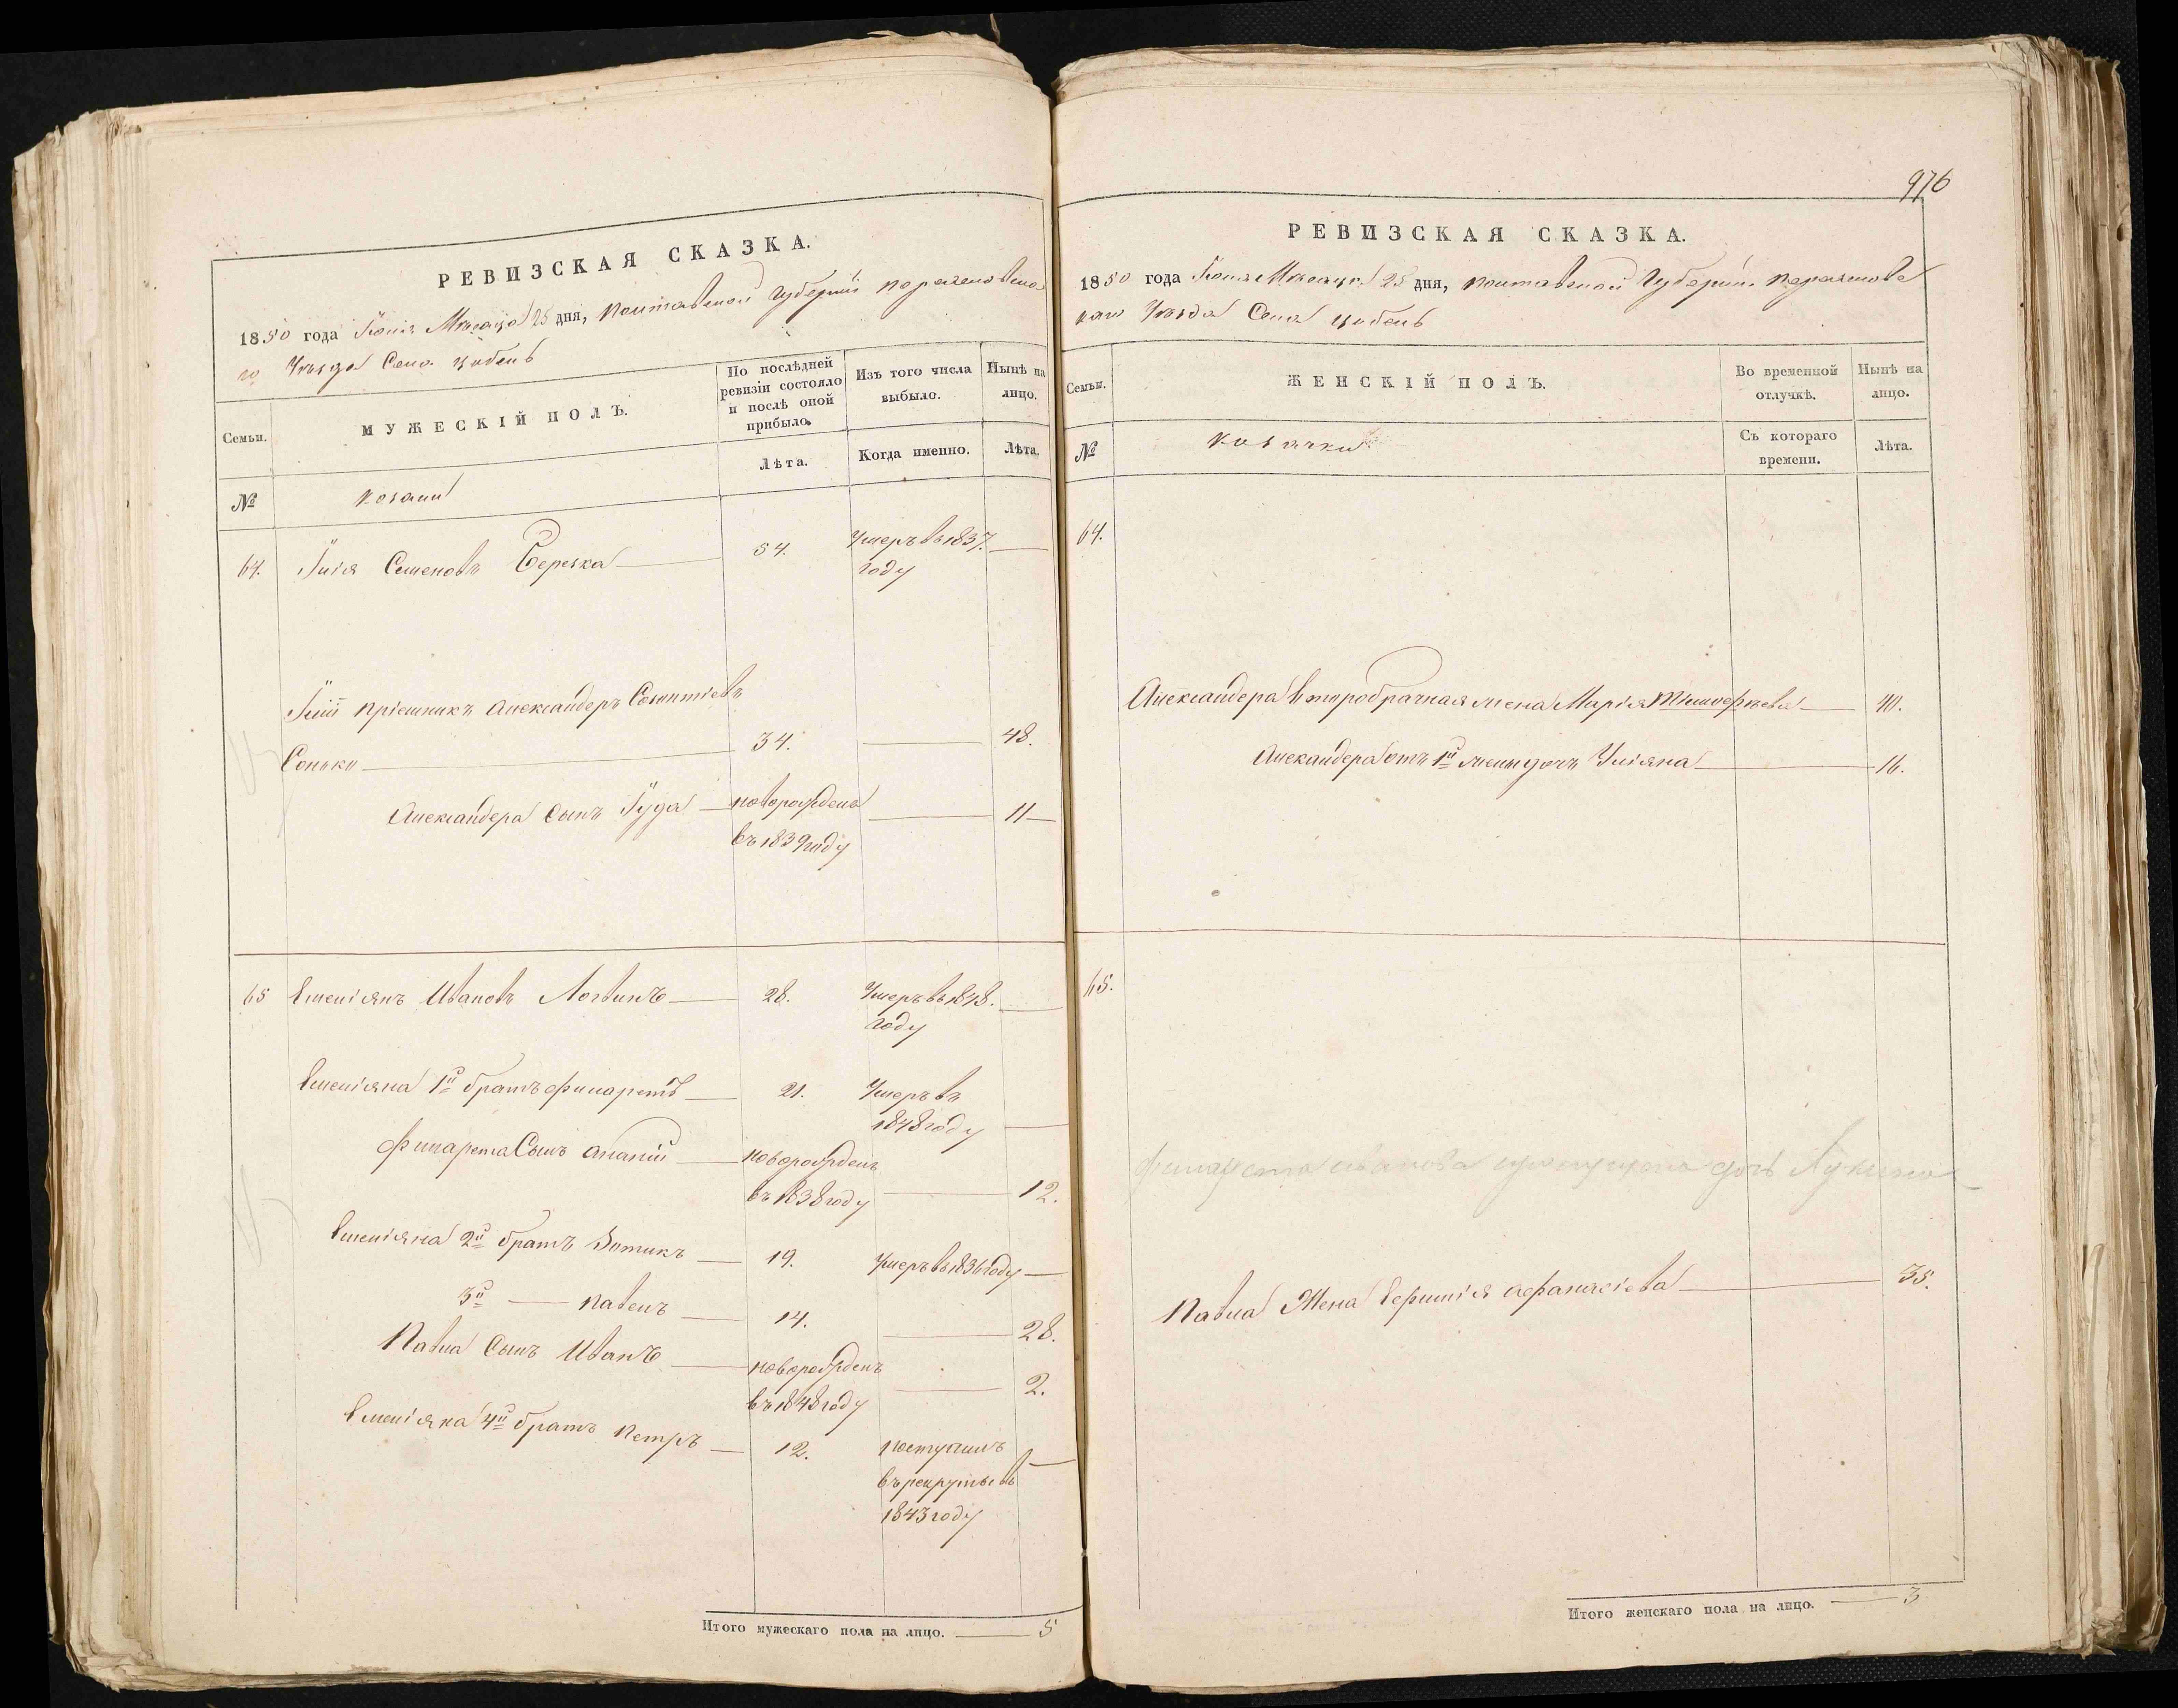 РЕВИЗСКАЯ СКАЗКА.
1850 года Іюня Мѣсяца 25 дня, Полтавской Губерніи Переяславска
го Уѣзда Села Цибель
Семьи.
МУЖЕСКІЙ ПОЛЪ.
По послѣдней ревизіи состояло и послѣ оной прибыло.
Изъ того числа выбыло.
Нынѣ на лицо.
№
Козаки
Лѣта.
Когда именно.
Лѣта.
64. Илія Семеновъ Березка 54. Умеръ въ 1837.
году
Иліи пріемникъ Александеръ Созонтіевъ
Сонько 34. 48.
Александера сынъ Іуда новорожденъ 11
въ 1839 году
65 Емеліянъ Ивановъ Логвинъ 28. Умеръ въ 1848.
году
Емеліяна 1й братъ Филаретъ 21. Умеръ въ
1848 году
Филарета Сынъ Ананій новорожденъ
въ 1838 году 12.
Емеліяна 2й братъ Зотикъ 19. Умеръ въ 1836 году
3й Павелъ 14. 28.
Павла Сынъ Иванъ новорожденъ 2.
въ 1848 году
Емеліяна 4й братъ Петръ 12. поступилъ
въ рекруты въ
1843 году
Итого мужескаго пола на лицо. 5
976
РЕВИЗСКАЯ СКАЗКА.
1850 года Іюня Мѣсяца 25 дня, Полтавской Губерніи Переяславс
каго Уѣзда Села Цибель
Семьи.
ЖЕНСКІЙ ПОЛЪ.
Во временной отлучкѣ.
Нынѣ на лицо.
№
Козачки
Съ котораго времени.
Лѣта.
64.
Александера второбрачная жена Марія Тимофѣева 40.
Александера отъ 1й жены дочь Уліяна 16.
65.
Филарета Иванова пропущена дочь
Павла Жена Ефимія Афанасіева 35.
Итого женскаго пола на лицо. 3